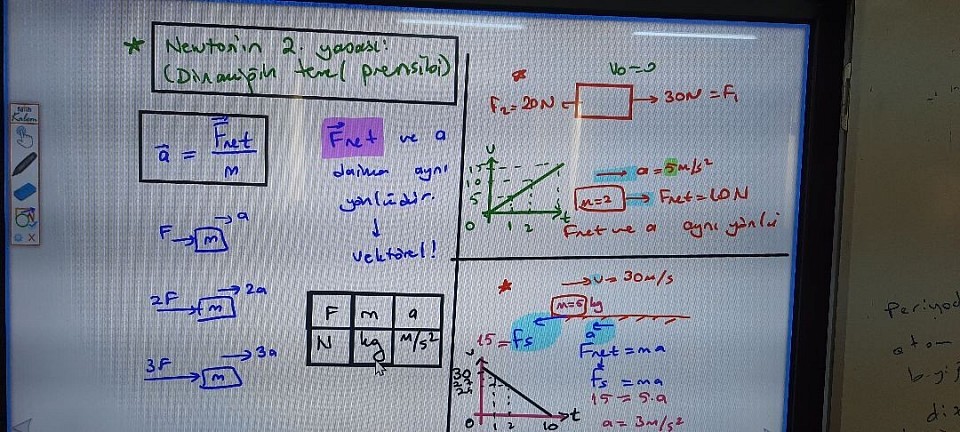 * Newton'un 2. yasası:
(Dinamiğin temel prensibi)
a = Fnet
m
Fnet ve a
daima aynı
yönlüdür.
↓
vektörel!
F → m → a
2F → m → 2a
3F → m → 3a
F m a
N kg m/s²
Kalem
*
V₀=0
F₂=20N ← → 30N = F₁
V
15
10
5
0 1 2 t
→ a = 5m/s²
m=2 → Fnet=10N
Fnet ve a aynı yönlü
*
→ v = 30m/s
m=5 kg
15 = fs
a ←
Fnet = ma
fs = ma
15 = 5.a
a = 3m/s²
v
30
27
24
0 1 2 10 t
Periyod
atom